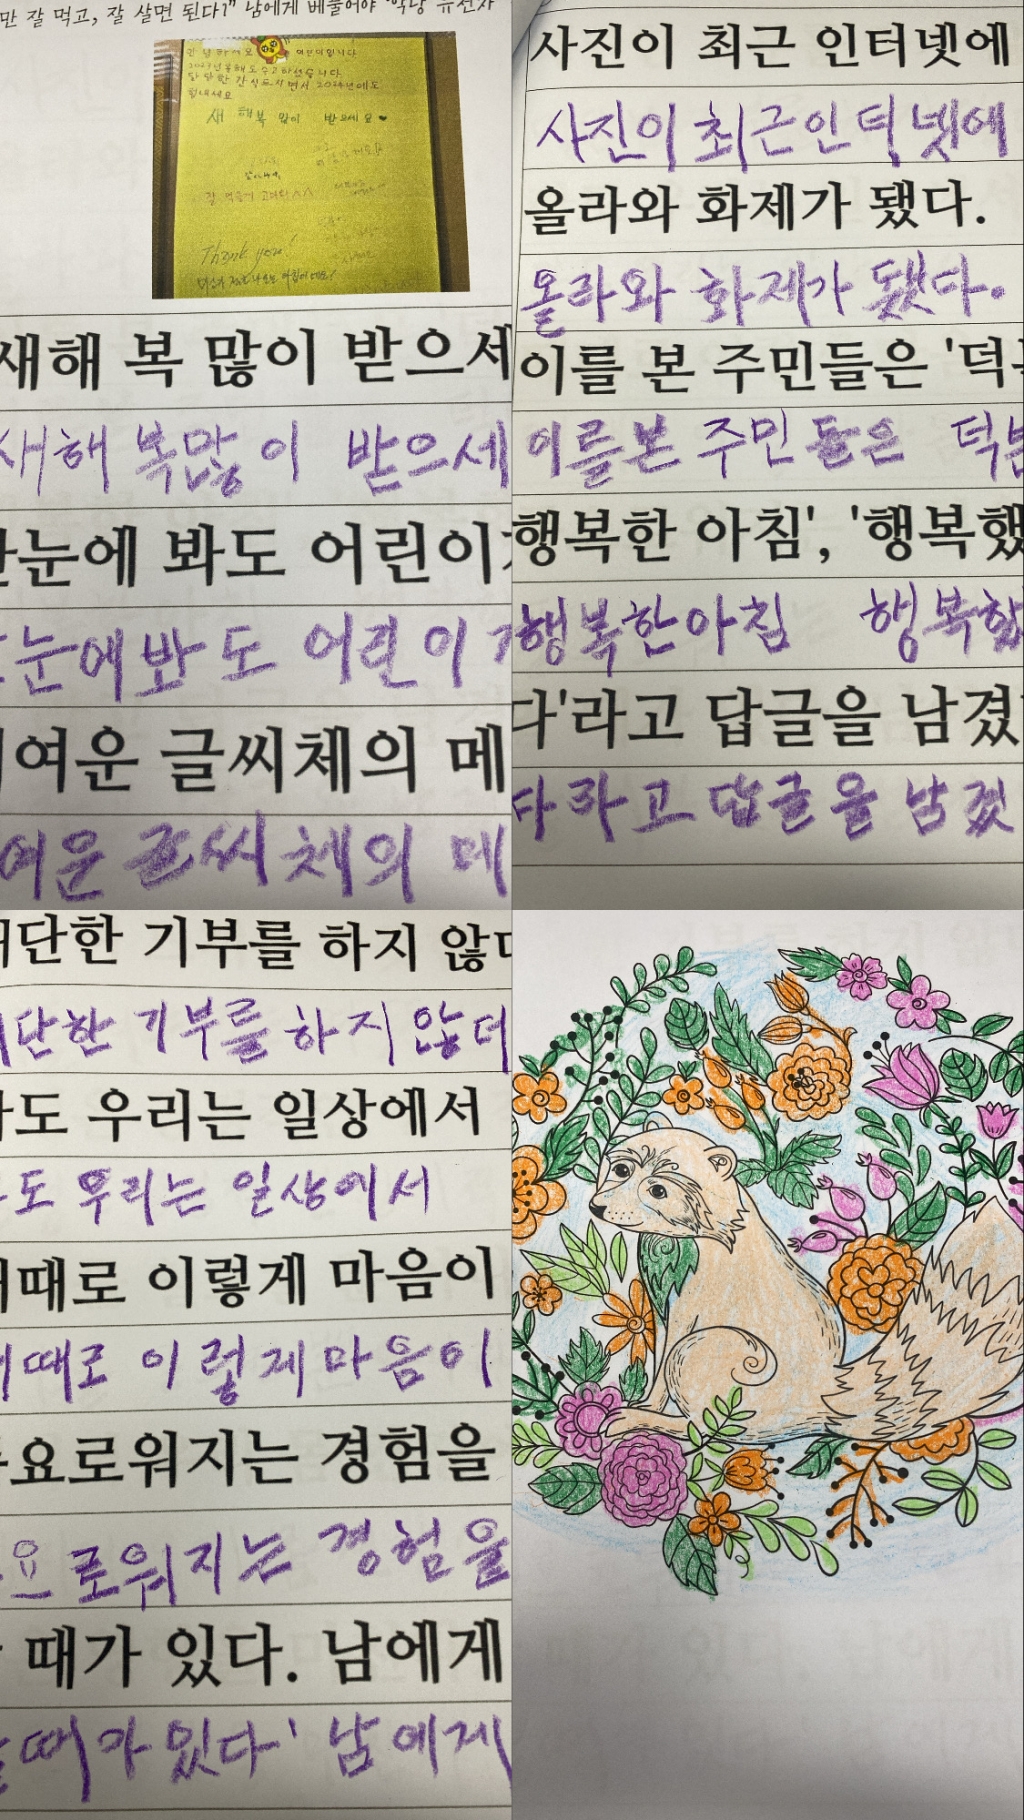 만 잘 먹고, 잘 살면 된다?" 남에게 베풀어야 '착당 유전자
2023년 올해도 수고하셨습니다
달달한 간식드시면서 2024년에도
힘내세요
새해복 많이 받으세요♥
Thank you!
새해 복 많이 받으세
새해 복많이 받으세
눈에 봐도 어린이
눈에봐도 어린이
여운 글씨체의 메
여운 글씨체의 메
사진이 최근 인터넷에
사진이 최근인턱넷에
올라와 화제가 됐다.
올라와 화제가 됐다.
이를 본 주민들은 '덕
이를본 주민들은 덕분
행복한 아침', '행복했
행복한아침 행복합
다'라고 답글을 남겼
다라고 답글을 남겼
단한 기부를 하지 않더
단한 기부를 하지 않더
도 우리는 일상에서
도 우리는 일상에서
때로 이렇게 마음이
때로 이렇게마음이
요로워지는 경험을
요로워지는 경험을
때가 있다. 남에게
때가있다' 남에게